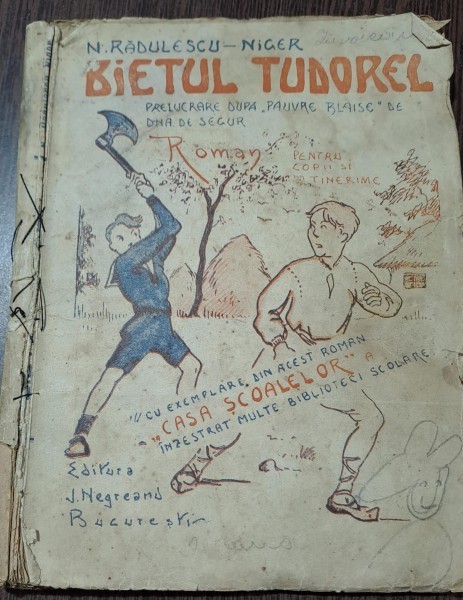 N. RĂDULESCU – NIGER
BIETUL TUDOREL
PRELUCRARE DUPĂ „PAUVRE BLAISE" DE
DNA DE SEGUR
Roman
PENTRU
COPII ȘI
TINERIME
CU EXEMPLARE, DIN ACEST ROMAN
"CASA ȘCOALELOR" A
ÎNZESTRAT MULTE BIBLIOTECI ȘCOLARE
Editura
J. Negreanu
București